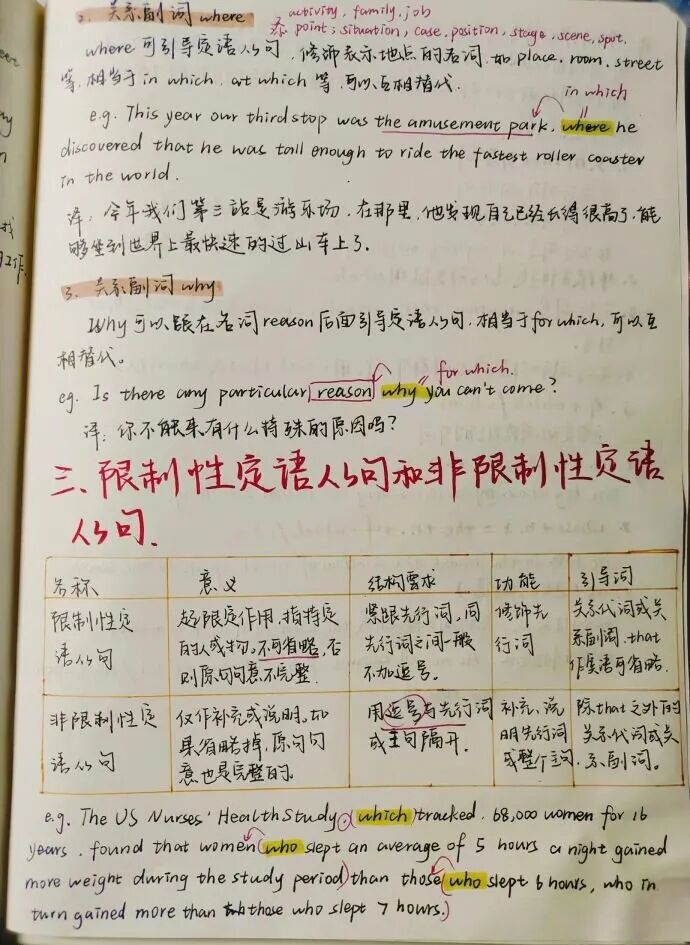 2. 关系副词 where
activity, family, job
point, situation, case, position, stage, scene, spot.
where 可引导定语从句，修饰表示地点的名词，如 place, room, street
等，相当于 in which, at which 等，可以互相替代.
in which
e.g. This year our third stop was the amusement park, where he
discovered that he was tall enough to ride the fastest roller coaster
in the world.
译：今年我们第三站是游乐场，在那里，他发现自己已经长得很高了，能
够坐到世界上最快速的过山车上了.
3. 关系副词 why
Why 可以跟在名词 reason 后面引导定语从句，相当于 for which，可以互
相替代。
for which.
eg. Is there any particular reason why you can't come?
译：你不能来有什么特殊的原因吗？
三、限制性定语从句和非限制性定语
从句.
名称 意义 结构需求 功能 引导词
限制性定语从句 起限定作用，指特定的人或物，不可省略，否则原句句意不完整. 紧跟先行词，同先行词之间一般不加逗号。 修饰先行词 关系代词或关系副词，that作宾语可省略.
非限制性定语从句 仅作补充或说明，如果省略掉，原句句意也是完整的。 用逗号与先行词或主句隔开. 补充、说明先行词或整个主句 除that之外的关系代词或关系副词。
e.g. The US Nurses' Health Study, which tracked 68,000 women for 16
years, found that women who slept an average of 5 hours a night gained
more weight during the study period than those who slept 6 hours, who in
turn gained more than those who slept 7 hours.